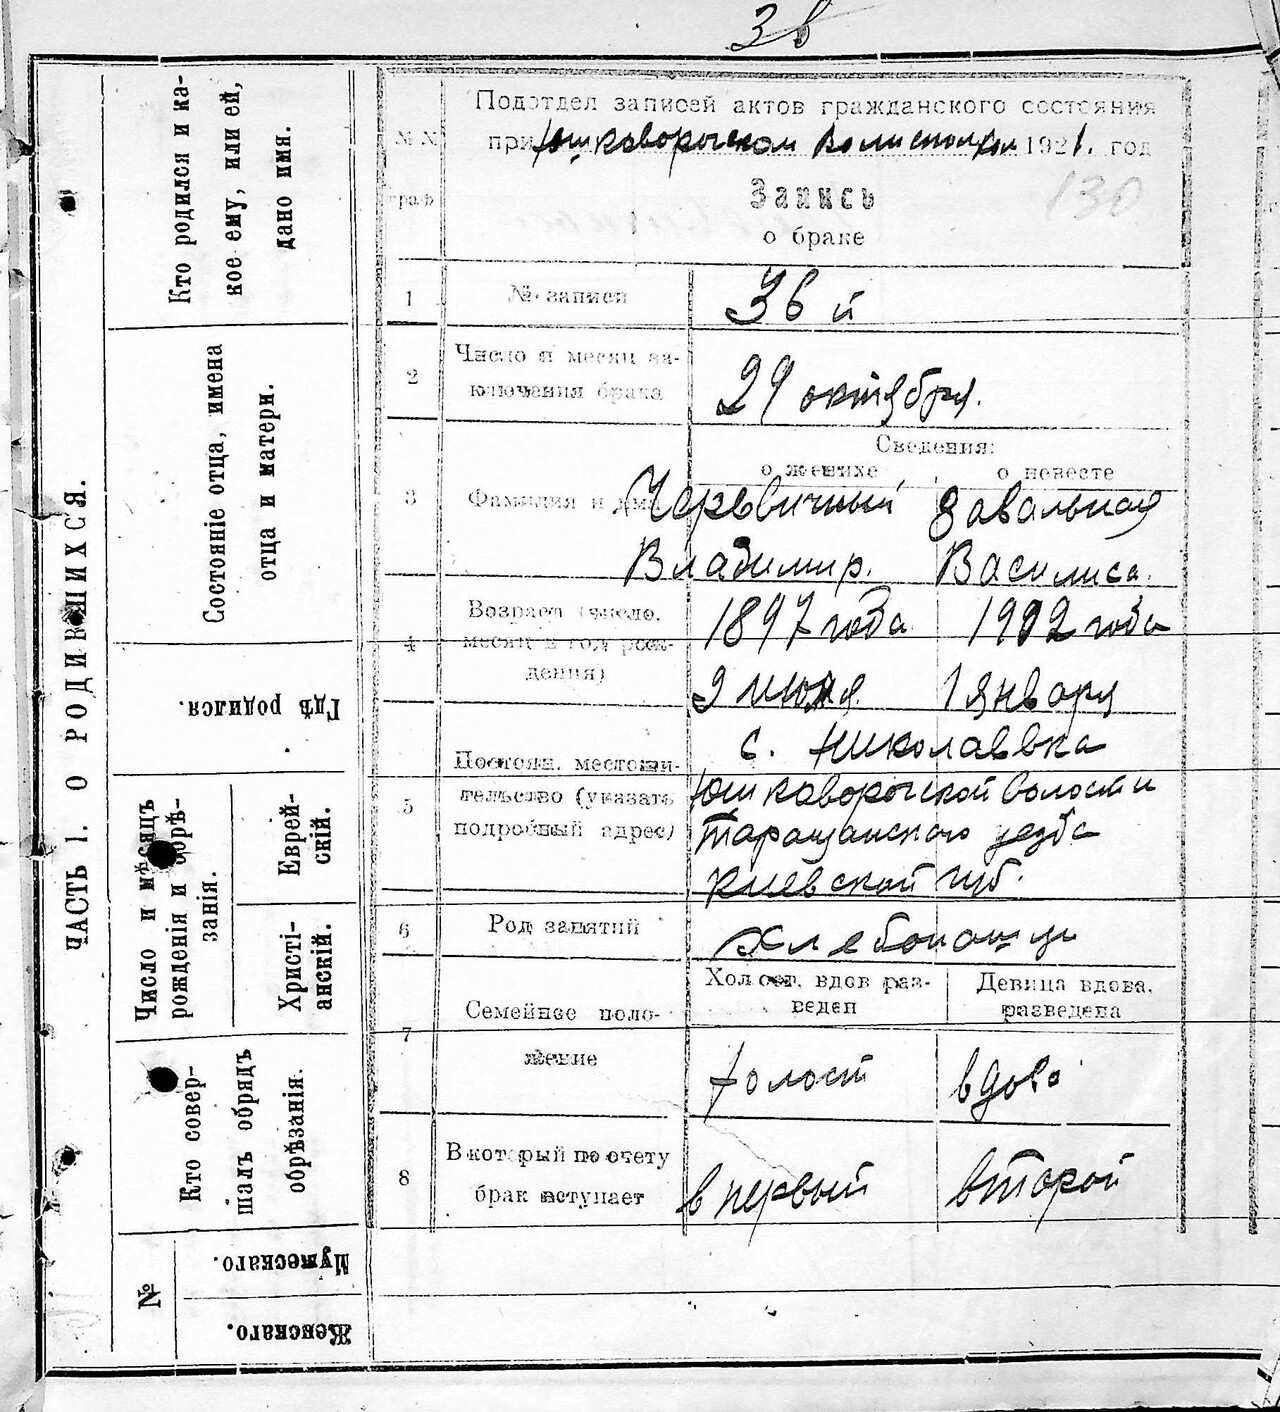 Зв
ЧАСТЬ I. О РОДИВШИХСЯ.
Кто родился и ка-
кое ему, или ей,
дано имя.
Состояніе отца, имена
отца и матери.
Гдѣ родился.
Число и мѣсяцъ
рожденія и обрѣ-
занія.
Еврей-
скій.
Христі-
анскій.
Кто совер-
шалъ обрядъ
обрѣзанія.
№
Мужескаго.
Женскаго.
№ №
граф
Подотдел записей актов гражданского состояния
при Юшковорогском Волисполком 1921. год
Запись
130
о браке
1 № записи Зв й
2 Число и месяц за-
ключения брака 29 октября.
Сведения:
о женихе о невесте
3 Фамилия и имя Червичный Завальная
Владимир. Василиса.
4 Возраст (число,
месяц и год рож-
дения)
1897 года 1902 года
9 июля. 1 января
5 Постоян. местожи-
тельство (указать
подробный адрес)
с. Николаевка
Юшковорогской волости
Таращанского уезда
Киевской губ.
6 Род занятий Хлебопашцы
7 Семейное поло-
жение
Холост, вдов раз-
веден
Девица вдова,
разведена
холост вдова
8 В который по счету
брак вступает
в первый второй